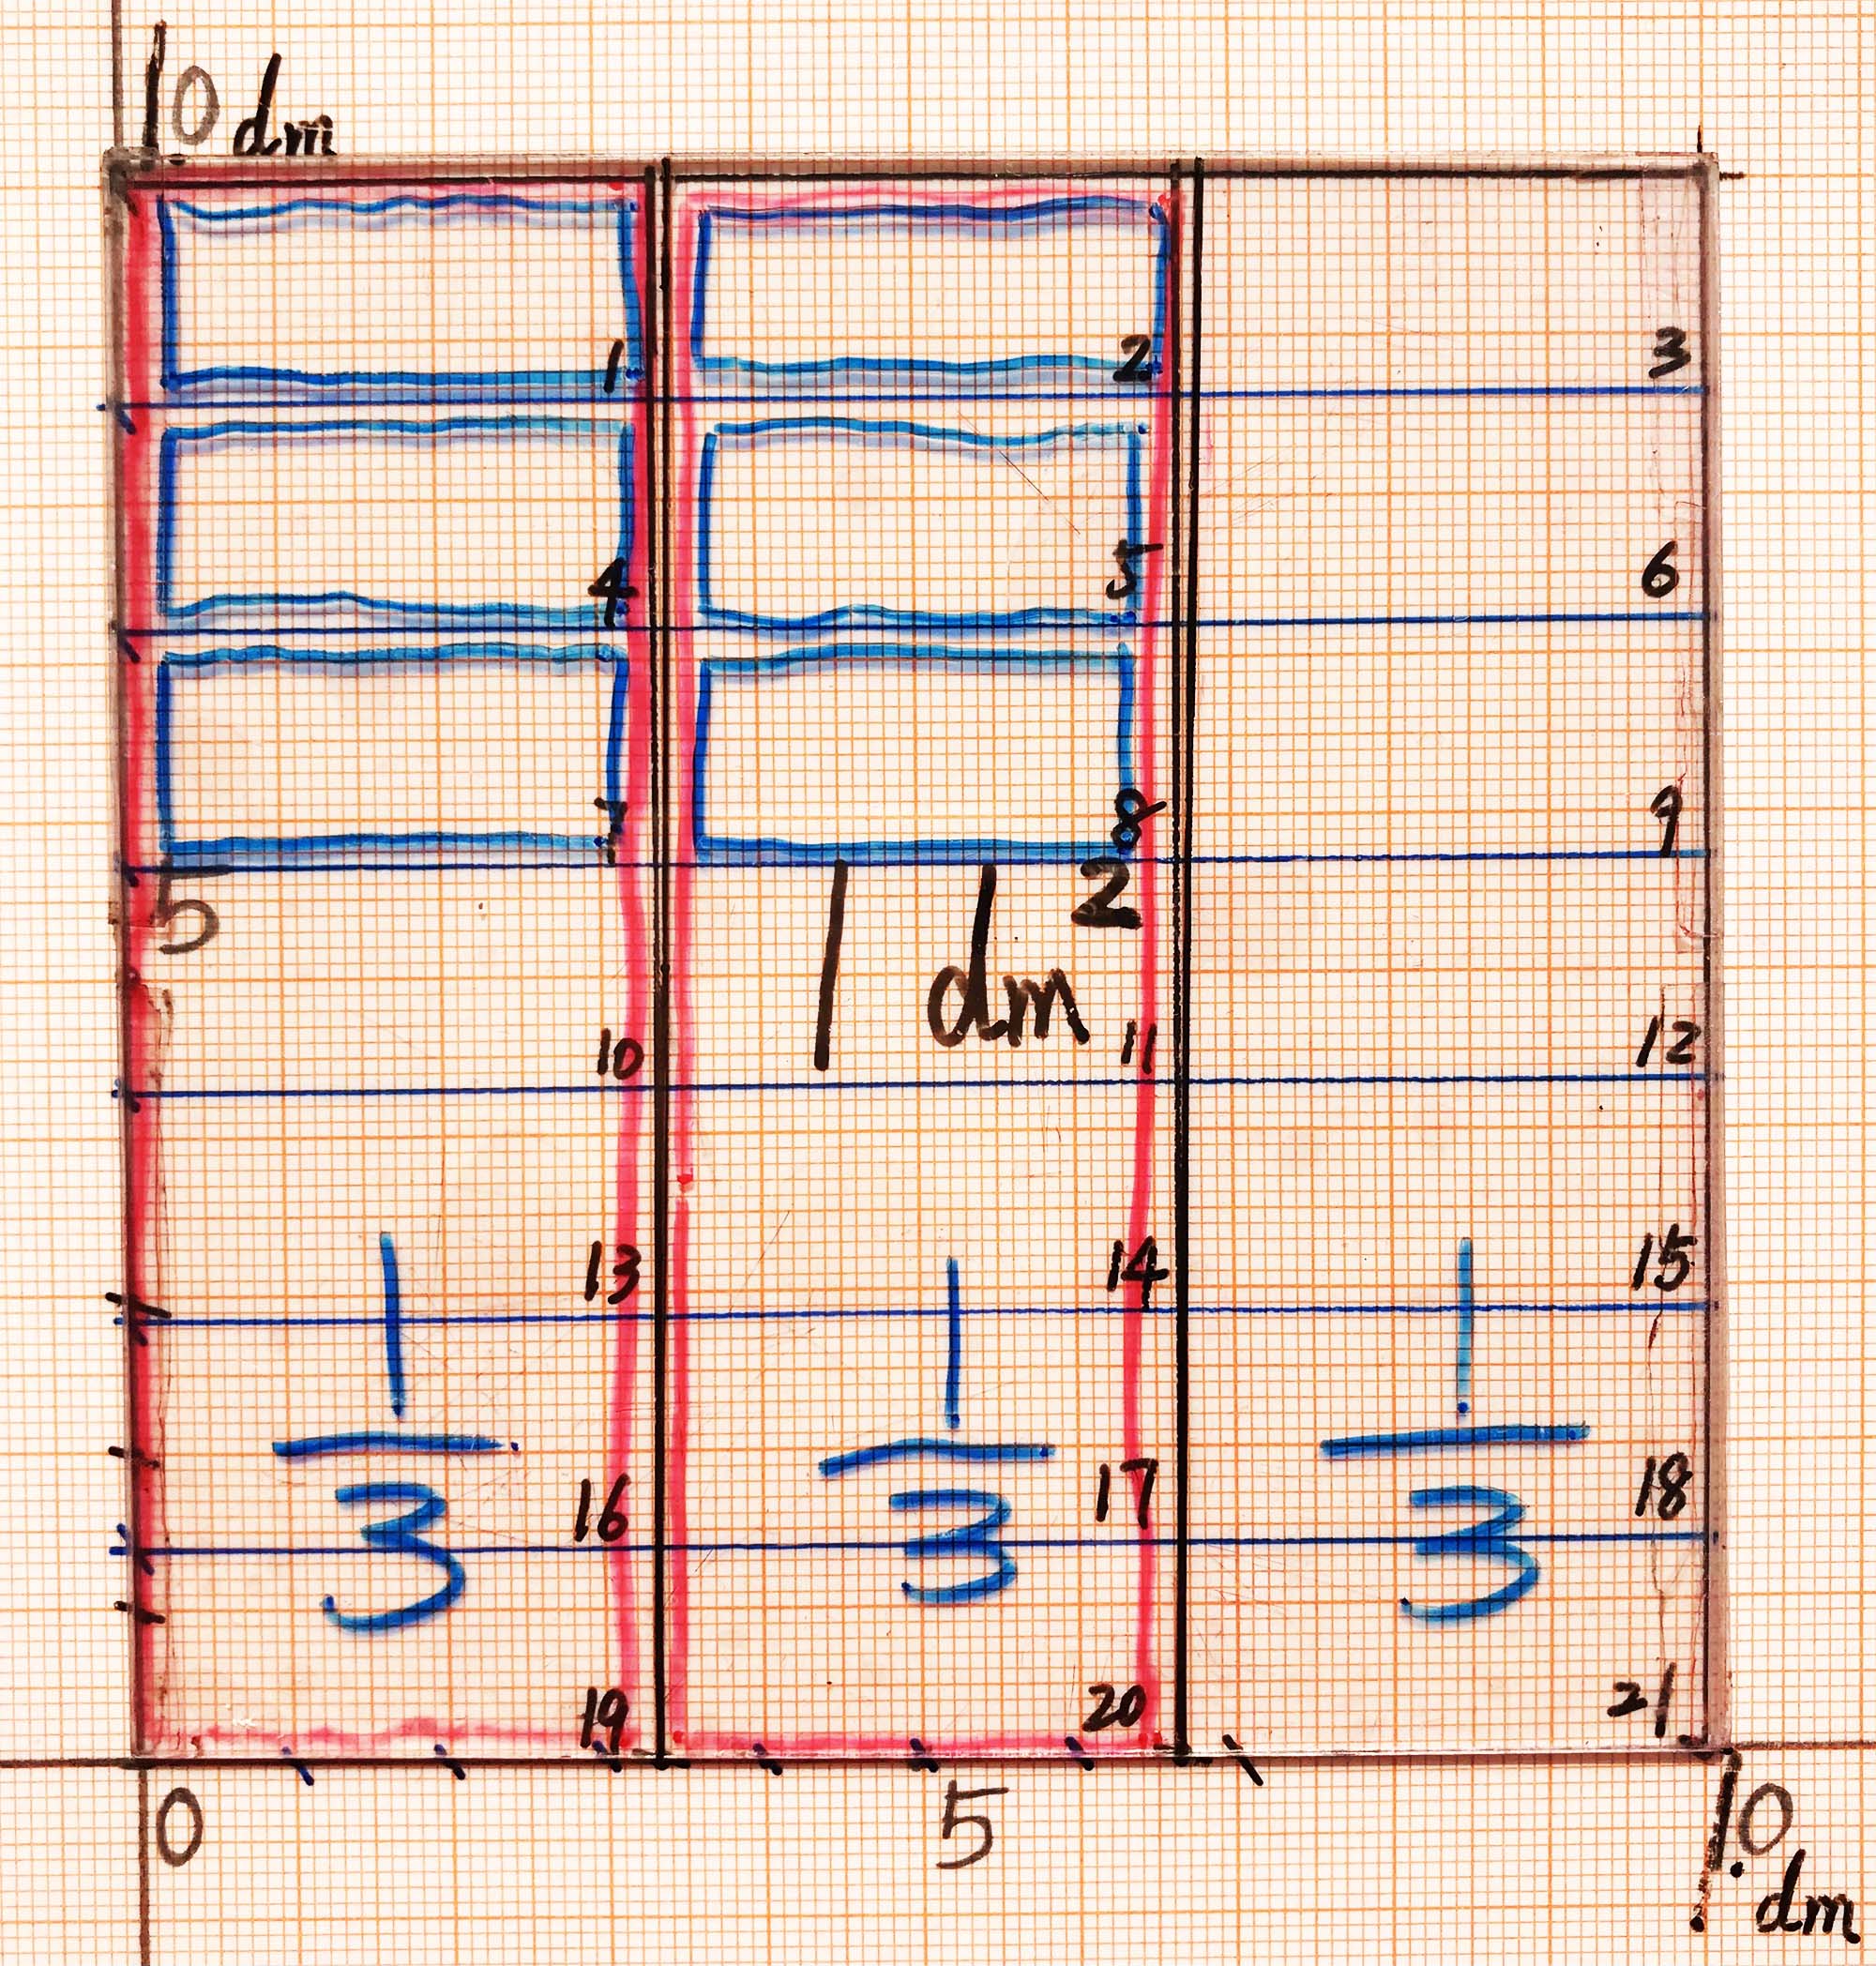 10 dm
1 2 3
4 5 6
7 8 9
5 1 dm 2
10 11 12
13 14 15
1/3 1/3 1/3
16 17 18
19 20 21
0 5 10
1. dm